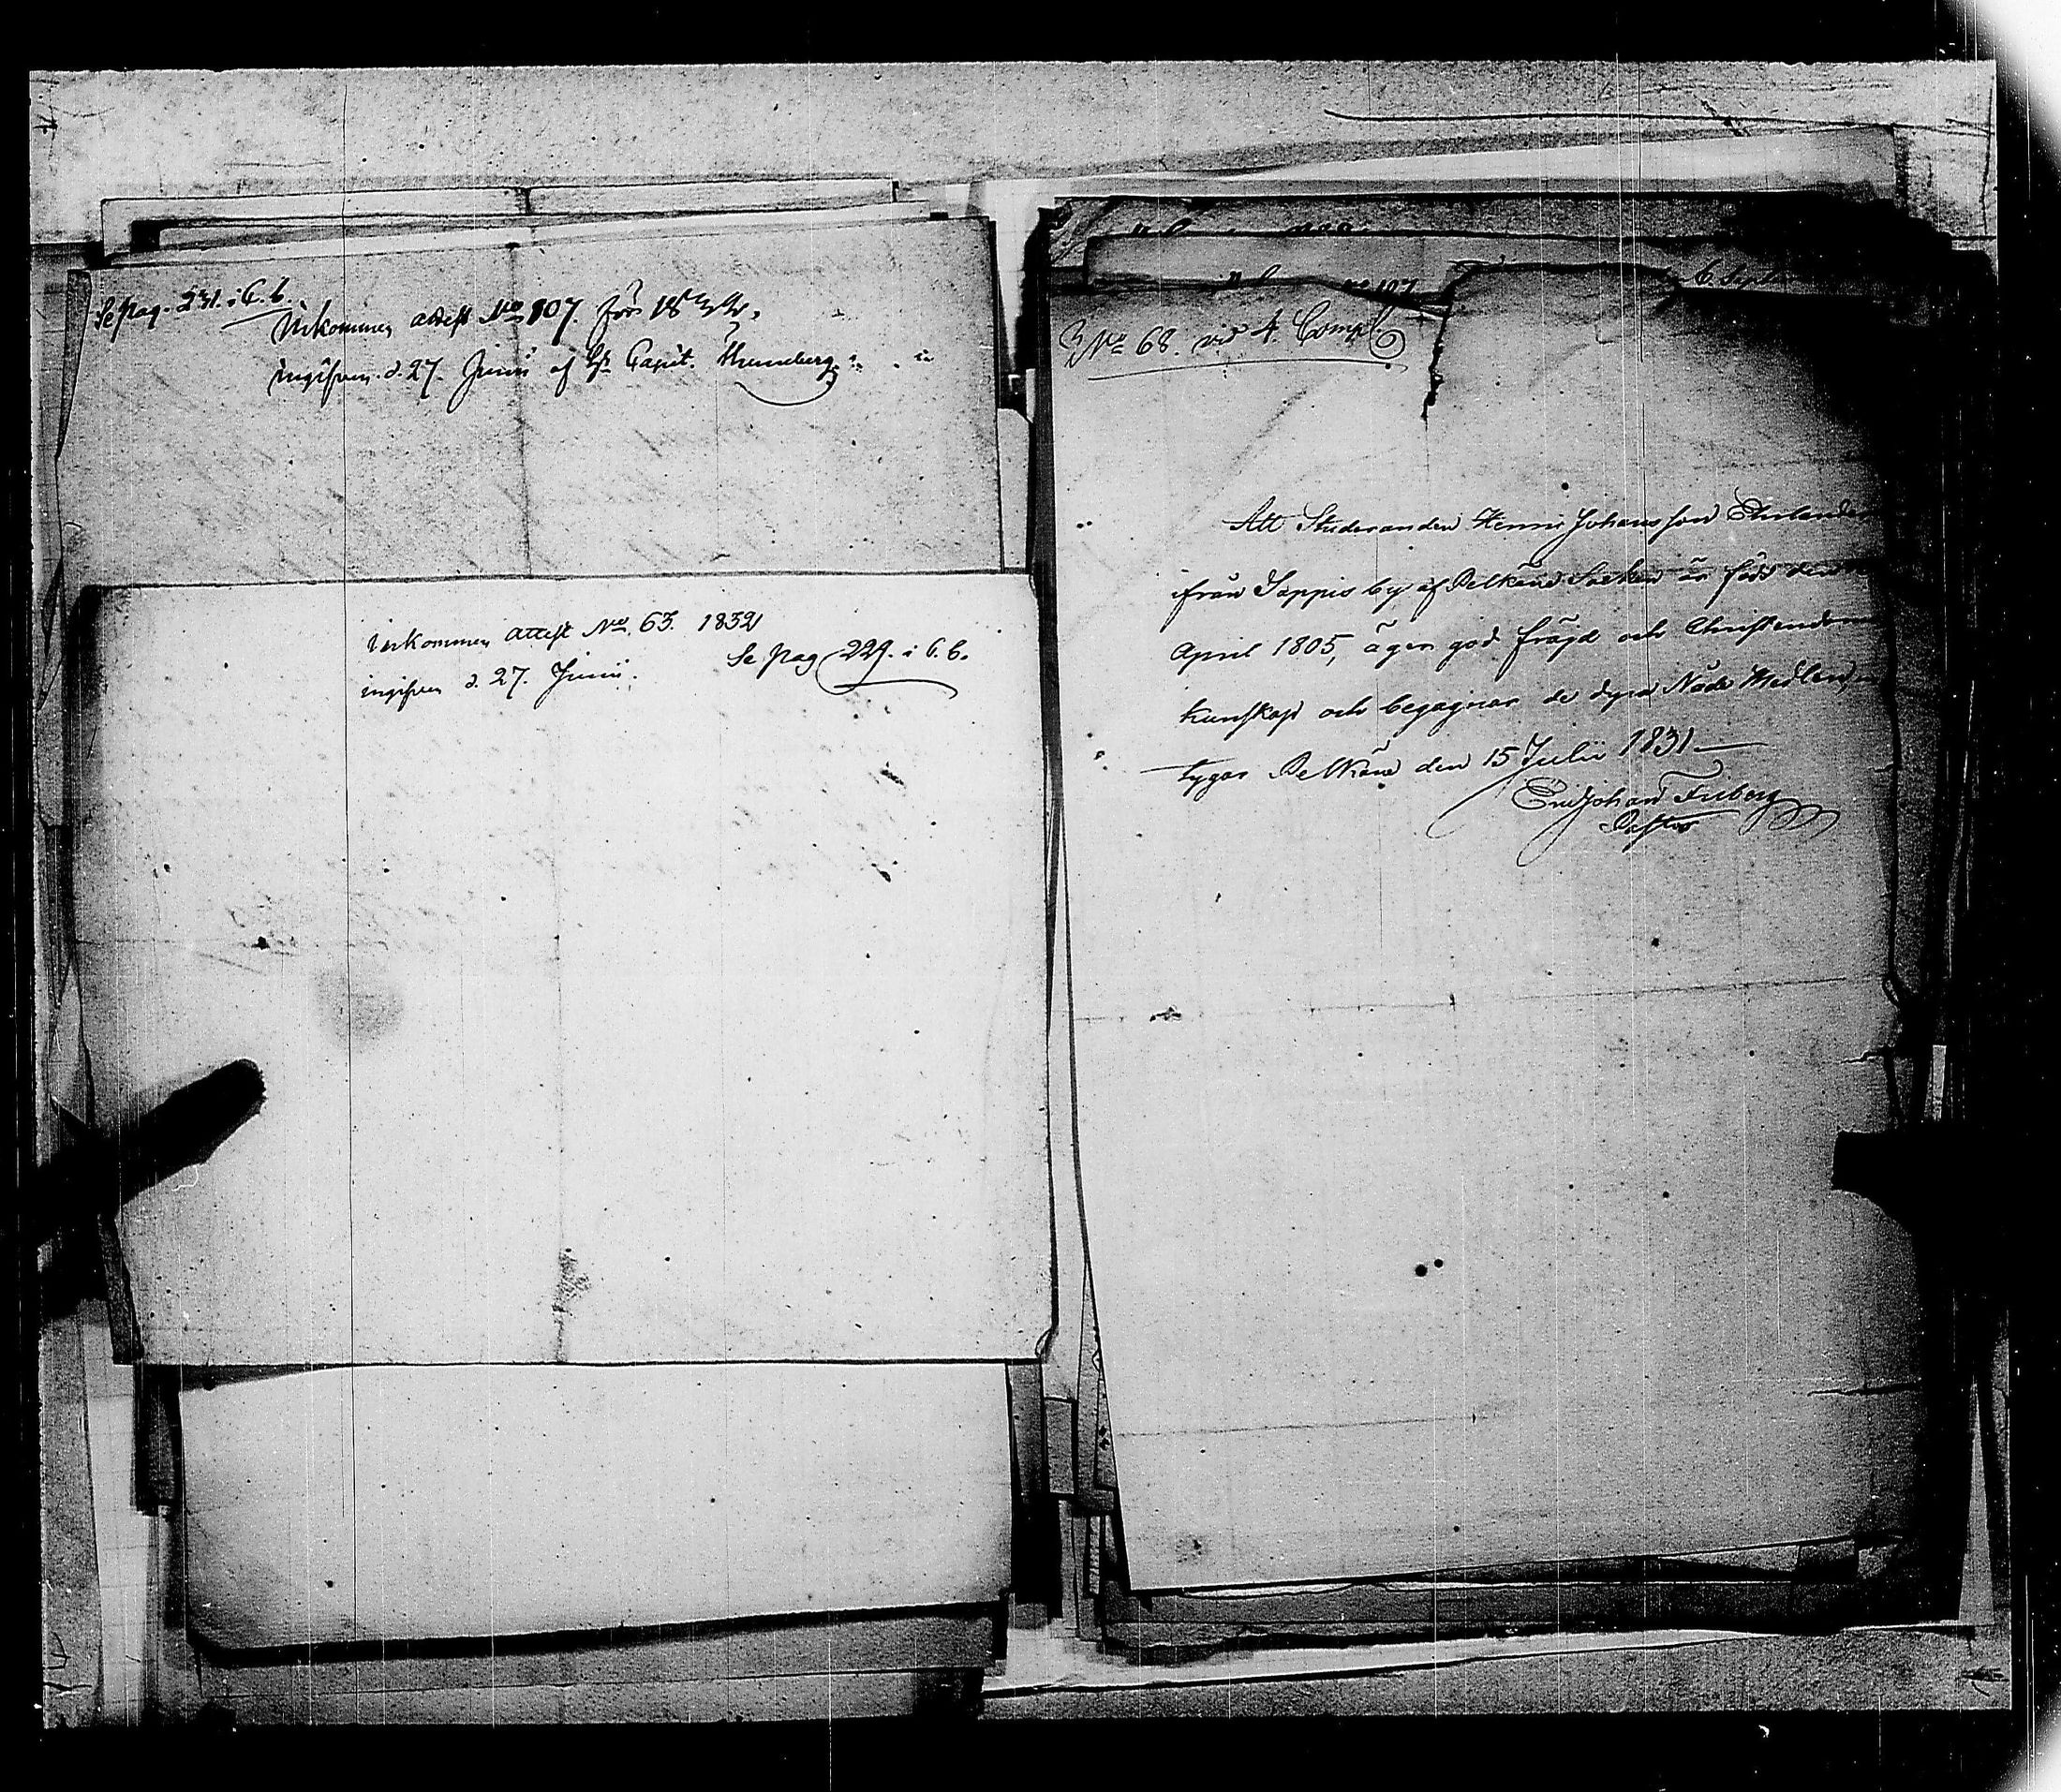 Se Pag. 231. i C. b.
Inkommen attest No 107. för 1832.
ingifven d. 27. Junii af Hr Capit. Thuneberg
Inkommen attest No. 63. 1832
Se Pag 229. i C. b.
ingifven d. 27. Junii.
No 68. vid 4. Comp.
Att Studeranden Henric Johansson
ifrån Sappis by af Pelkäne Socken är född den
April 1805, äger god frägd och Christendoms
kunskap och begagnar de dyra Nåde Medlen,
tygar Pelkäne den 15 Julii 1831
Eric Johan Friberg
Pastor